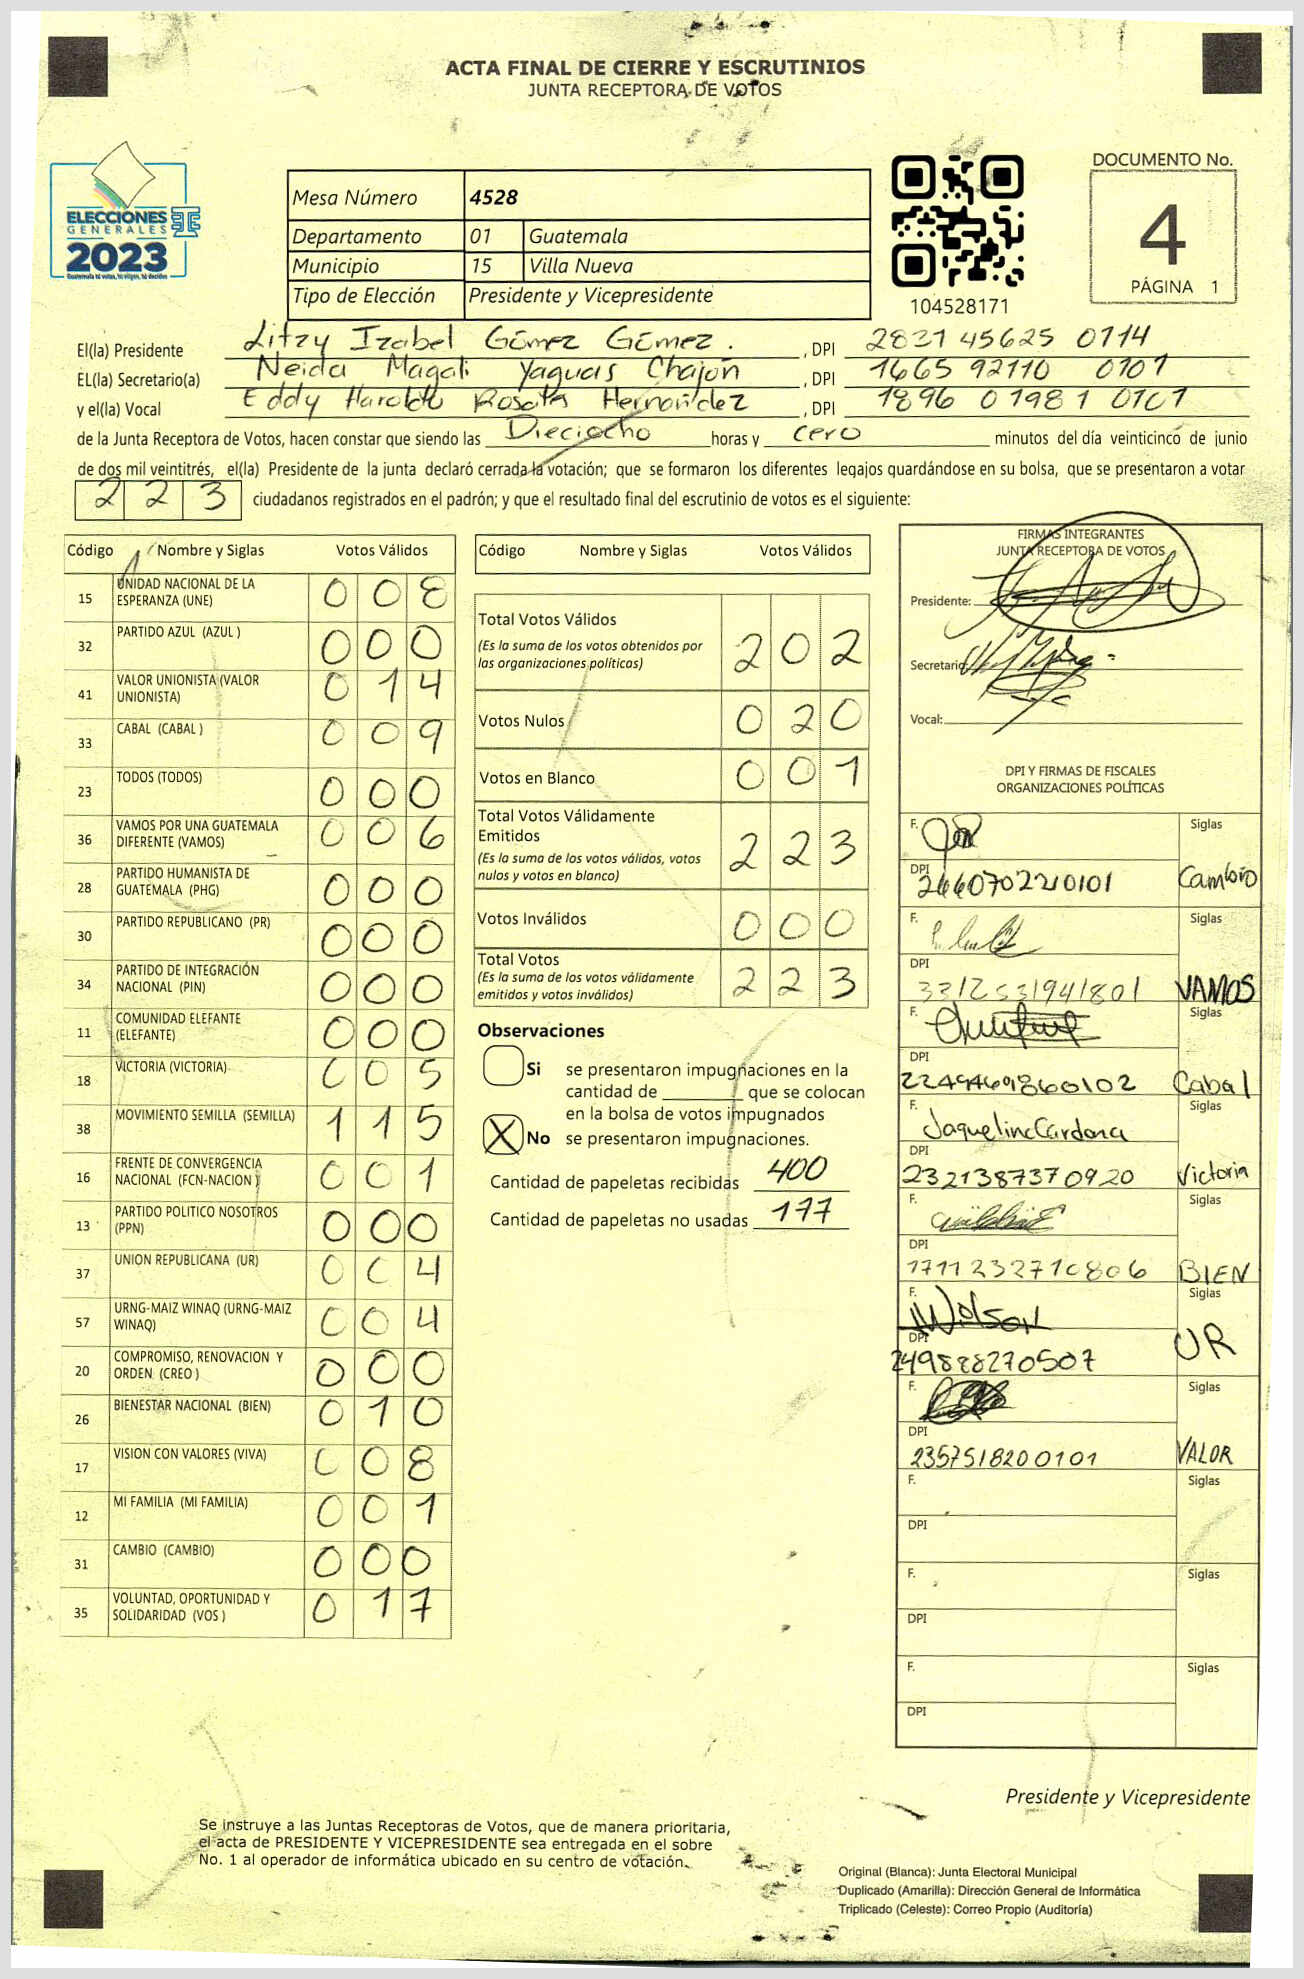 ACTA FINAL DE CIERRE Y ESCRUTINIOS
JUNTA RECEPTORA DE VOTOS
ELECCIONES
GENERALES
2023
Mesa Número 4528
Departamento 01 Guatemala
Municipio 15 Villa Nueva
Tipo de Elección Presidente y Vicepresidente
104528171
DOCUMENTO No.
4
PÁGINA 1
El(la) Presidente Litzy Izabel Gómez Gómez. , DPI 2831 45625 0114
EL(la) Secretario(a) Neida Magali Yaguas Chajón , DPI 1665 92110 0101
y el(la) Vocal Eddy Haroldo Rosales Hernández , DPI 1896 01981 0101
de la Junta Receptora de Votos, hacen constar que siendo las Dieciocho horas y cero minutos del día veinticinco de junio
de dos mil veintitrés, el(la) Presidente de la junta declaró cerrada la votación; que se formaron los diferentes legajos quardándose en su bolsa, que se presentaron a votar
223 ciudadanos registrados en el padrón; y que el resultado final del escrutinio de votos es el siguiente:
Código Nombre y Siglas Votos Válidos
15 UNIDAD NACIONAL DE LA ESPERANZA (UNE) 008
32 PARTIDO AZUL (AZUL ) 000
41 VALOR UNIONISTA (VALOR UNIONISTA) 014
33 CABAL (CABAL ) 009
23 TODOS (TODOS) 000
36 VAMOS POR UNA GUATEMALA DIFERENTE (VAMOS) 006
28 PARTIDO HUMANISTA DE GUATEMALA (PHG) 000
30 PARTIDO REPUBLICANO (PR) 000
34 PARTIDO DE INTEGRACIÓN NACIONAL (PIN) 000
11 COMUNIDAD ELEFANTE (ELEFANTE) 000
18 VICTORIA (VICTORIA) 005
38 MOVIMIENTO SEMILLA (SEMILLA) 115
16 FRENTE DE CONVERGENCIA NACIONAL (FCN-NACION ) 001
13 PARTIDO POLITICO NOSOTROS (PPN) 000
37 UNION REPUBLICANA (UR) 004
57 URNG-MAIZ WINAQ (URNG-MAIZ WINAQ) 004
20 COMPROMISO, RENOVACION Y ORDEN (CREO ) 000
26 BIENESTAR NACIONAL (BIEN) 010
17 VISION CON VALORES (VIVA) 008
12 MI FAMILIA (MI FAMILIA) 001
31 CAMBIO (CAMBIO) 000
35 VOLUNTAD, OPORTUNIDAD Y SOLIDARIDAD (VOS ) 017
Código Nombre y Siglas Votos Válidos
Total Votos Válidos 202
(Es la suma de los votos obtenidos por
las organizaciones políticas)
Votos Nulos 020
Votos en Blanco 001
Total Votos Válidamente
Emitidos 223
(Es la suma de los votos válidos, votos
nulos y votos en blanco)
Votos Inválidos 000
Total Votos 223
(Es la suma de los votos válidamente
emitidos y votos inválidos)
Observaciones
Si se presentaron impugnaciones en la
cantidad de ________ que se colocan
en la bolsa de votos impugnados
X No se presentaron impugnaciones.
Cantidad de papeletas recibidas 400
Cantidad de papeletas no usadas 177
FIRMAS INTEGRANTES
JUNTA RECEPTORA DE VOTOS
Presidente:
Secretario
Vocal:
DPI Y FIRMAS DE FISCALES
ORGANIZACIONES POLÍTICAS
F. Siglas
DPI 2460702210101 Cambio
F. Siglas
DPI 3312531941801 VAMOS
F. Siglas
DPI 2249469860102 Cabal
F. Jaqueline Cardona Siglas
DPI 2321387370920 Victoria
F. Siglas
DPI 1711232710806 BIEN
F. Wilson Siglas
DPI 249888270507 UR
F. Siglas
DPI 2357518200101 VALOR
F. Siglas
DPI
F. Siglas
DPI
F. Siglas
DPI
Presidente y Vicepresidente
Se instruye a las Juntas Receptoras de Votos, que de manera prioritaria,
el acta de PRESIDENTE Y VICEPRESIDENTE sea entregada en el sobre
No. 1 al operador de informática ubicado en su centro de votación.
Original (Blanca): Junta Electoral Municipal
Duplicado (Amarilla): Dirección General de Informática
Triplicado (Celeste): Correo Propio (Auditoría)